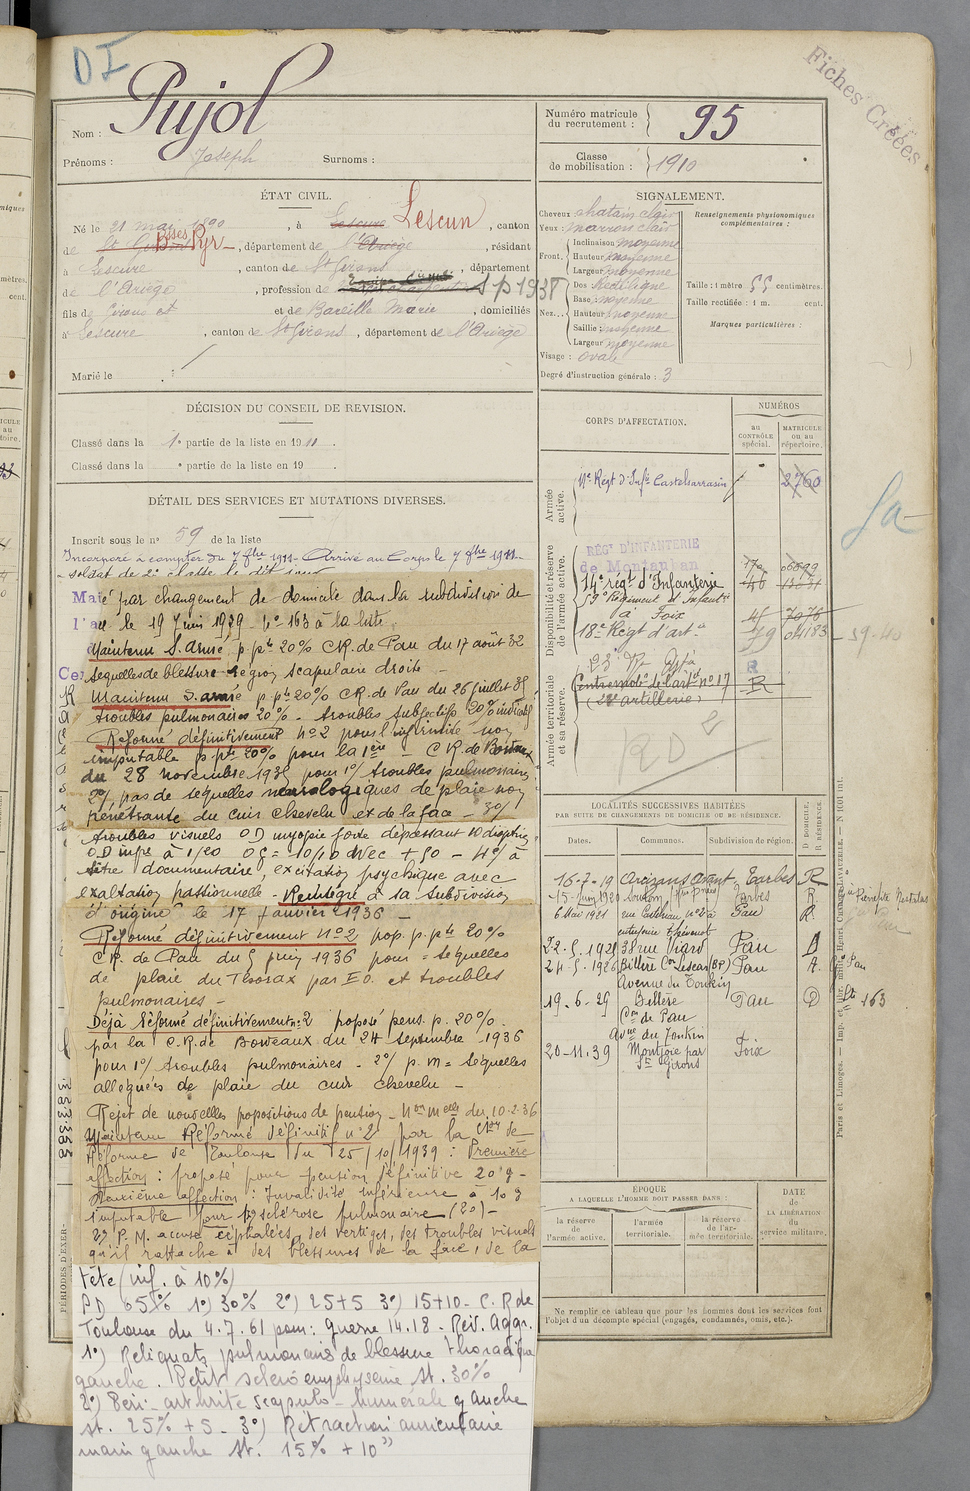 DI
Fiches Créées
Nom : Pujol
Prénoms : Joseph Surnoms :
Numéro matricule du recrutement : 95
Classe de mobilisation : 1910
ÉTAT CIVIL.
Né le 21 mai 1890, à Lescure Lescun, canton
de St Girons Bsses Pyr, département de l'Ariège, résidant
à Lescure, canton de St Girons, département
de l'Ariège, profession de S P 1938
fils de Girons et et de Bareille Marie, domiciliés
à Lescure, canton de St Girons, département de l'Ariège
Marié le
DÉCISION DU CONSEIL DE REVISION.
Classé dans la 1e partie de la liste en 1911.
Classé dans la e partie de la liste en 19 .
DÉTAIL DES SERVICES ET MUTATIONS DIVERSES.
Inscrit sous le no 59 de la liste
Incorporé à compter du 7 8bre 1911. Arrivé au Corps le 7 8bre 1911.
soldat de 2e classe le dit jour
par changement de domicile dans la subdivision de
le 19 Juin 1929 no 163 à la liste
Maintenu S. armé p. pte 20% CR. de Pau du 17 août 32
séquelles de blessure région scapulaire droite
Maintenu S. armé p. pte 20% CR. de Pau du 26 juillet 35
troubles pulmonaires 20% - troubles subjectifs 20%
Réformé définitivement no 2 pour infirmité non
imputable p. pte 20% pour la 1ère - CR. de Bordeaux
du 28 novembre 1935 pour 1o/ troubles pulmonaires
2o/ pas de séquelles neurologiques de plaie non
pénétrante du cuir chevelu et de la face - 3o/
troubles visuels OD myopie forte dépassant 10 dioptries
OD infre à 1/20 OG = 10/10 avec + 50 - 4o/ à
titre documentaire, excitation psychique avec
exaltation passionnelle - Réintégré à sa subdivision
d'origine le 17 Janvier 1936 -
Réformé définitivement No 2 pop. p. pte 20%
C.R. de Pau du 5 juin 1936 pour = séquelles
de plaie du Thorax par E.O. et troubles
pulmonaires -
Déjà réformé définitivement no 2 proposé pens. p. 20%
par la C.R. de Bordeaux du 24 septembre 1936
pour 1o/ troubles pulmonaires - 2o/ p. m = séquelles
alléguées de plaie du cuir chevelu -
Rejet de nouvelles propositions de pension - Don melle du 10-2-36
Maintenu Réformé définitif no 2 par la Cion de
Réforme de Toulouse du 25/10/1939 : Première
affection : proposé pour pension définitive 20% -
Deuxième affection : Invalidité inférieure à 10%
imputable pour 1o sclérose pulmonaire (20) -
2o P.M. accuse céphalées, des vertiges, des troubles visuels
qu'il rattache à des blessures de la face, de la
tête (inf. à 10%)
PD 65% 1o) 30% 2o) 25+5 3o) 15+10 - C.R de
Toulouse du 4.7.61 pour : guerre 14.18 - Rév. Aggr.
1o) Reliquats pulmonaires de blessure thoracique
gauche. Petit scléro emphysème St. 30%
2o) Péri-arthrite scapulo-humérale gauche
st. 25% + 5 - 3o) Rétraction
main gauche St. 15% + 10"
PÉRIODES D'EXER-
SIGNALEMENT.
Cheveux châtain clair
Yeux : marron clair
Front. Inclinaison moyenne
Hauteur moyenne
Largeur moyenne
Nez... Dos Rectiligne
Base moyenne
Hauteur moyenne
Saillie : moyenne
Largeur moyenne
Visage : ovale
Renseignements physionomiques complémentaires :
Taille : 1 mètre 55 centimètres.
Taille rectifiée : 1 m. cent.
Marques particulières :
Degré d'instruction générale : 3
CORPS D'AFFECTATION.
NUMÉROS
au CONTRÔLE spécial.
MATRICULE ou au répertoire.
Armée active.
11e Régt d'Infie Castelsarrasin 3760
Disponibilité et réserve de l'armée active.
RÉGt D'INFANTERIE
de Montauban
14e régt d'Infanterie
59e Régiment d'Infantie
à Foix
18e Régt d'art 79 04183 - 39-40
Armée territoriale et sa réserve.
23e Rt
Centre mob. de l'art no 17 R
(22e artillerie)
RD 2
LOCALITÉS SUCCESSIVES HABITÉES
PAR SUITE DE CHANGEMENTS DE DOMICILE OU DE RÉSIDENCE.
Dates. Communes. Subdivision de région. D DOMICILE, R RÉSIDENCE.
16-7-19 Arcizans Avant Tarbes R
15 Juin 1920 Soulom (Htes Pnées) Tarbes R. Pierrefitte Nestalas
6 Mai 1921 Pau R.
22-5-1925 38 rue Viard Pau D
24-5-1926 Billère Con Lescar (BP) Pau
Avenue du Tonkin
19-6-29 Billère Pau D 163
Con de Pau
Avue du Tonkin
20-11-39 Montjoie par Foix
St Girons
ÉPOQUE
A LAQUELLE L'HOMME DOIT PASSER DANS :
la réserve de l'armée active.
l'armée territoriale.
la réserve de l'armée territoriale.
DATE de LA LIBÉRATION du service militaire.
Ne remplir ce tableau que pour les hommes dont les services font
l'objet d'un décompte spécial (engagés, condamnés, omis, etc.).